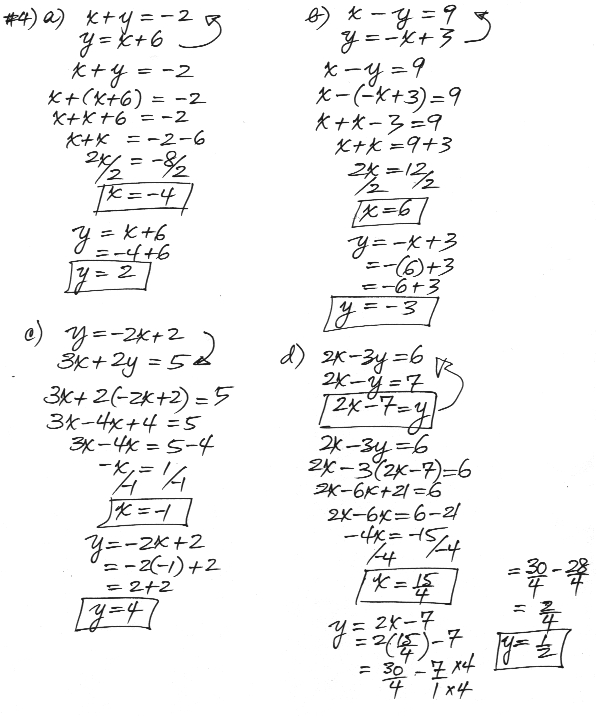 #4) a) x + y = -2
y = x + 6
x + y = -2
x + (x + 6) = -2
x + x + 6 = -2
x + x = -2 - 6
2x/2 = -8/2
x = -4
y = x + 6
= -4 + 6
y = 2
b) x - y = 9
y = -x + 3
x - y = 9
x - (-x + 3) = 9
x + x - 3 = 9
x + x = 9 + 3
2x/2 = 12/2
x = 6
y = -x + 3
= -(6) + 3
= -6 + 3
y = -3
c) y = -2x + 2
3x + 2y = 5
3x + 2(-2x + 2) = 5
3x - 4x + 4 = 5
3x - 4x = 5 - 4
-x/-1 = 1/-1
x = -1
y = -2x + 2
= -2(-1) + 2
= 2 + 2
y = 4
d) 2x - 3y = 6
2x - y = 7
2x - 7 = y
2x - 3y = 6
2x - 3(2x - 7) = 6
2x - 6x + 21 = 6
2x - 6x = 6 - 21
-4x/-4 = -15/-4
x = 15/4
y = 2x - 7
= 2(15/4) - 7
= 30/4 - 7/1 ×4 ×4
= 30/4 - 28/4
= 2/4
y = 1/2